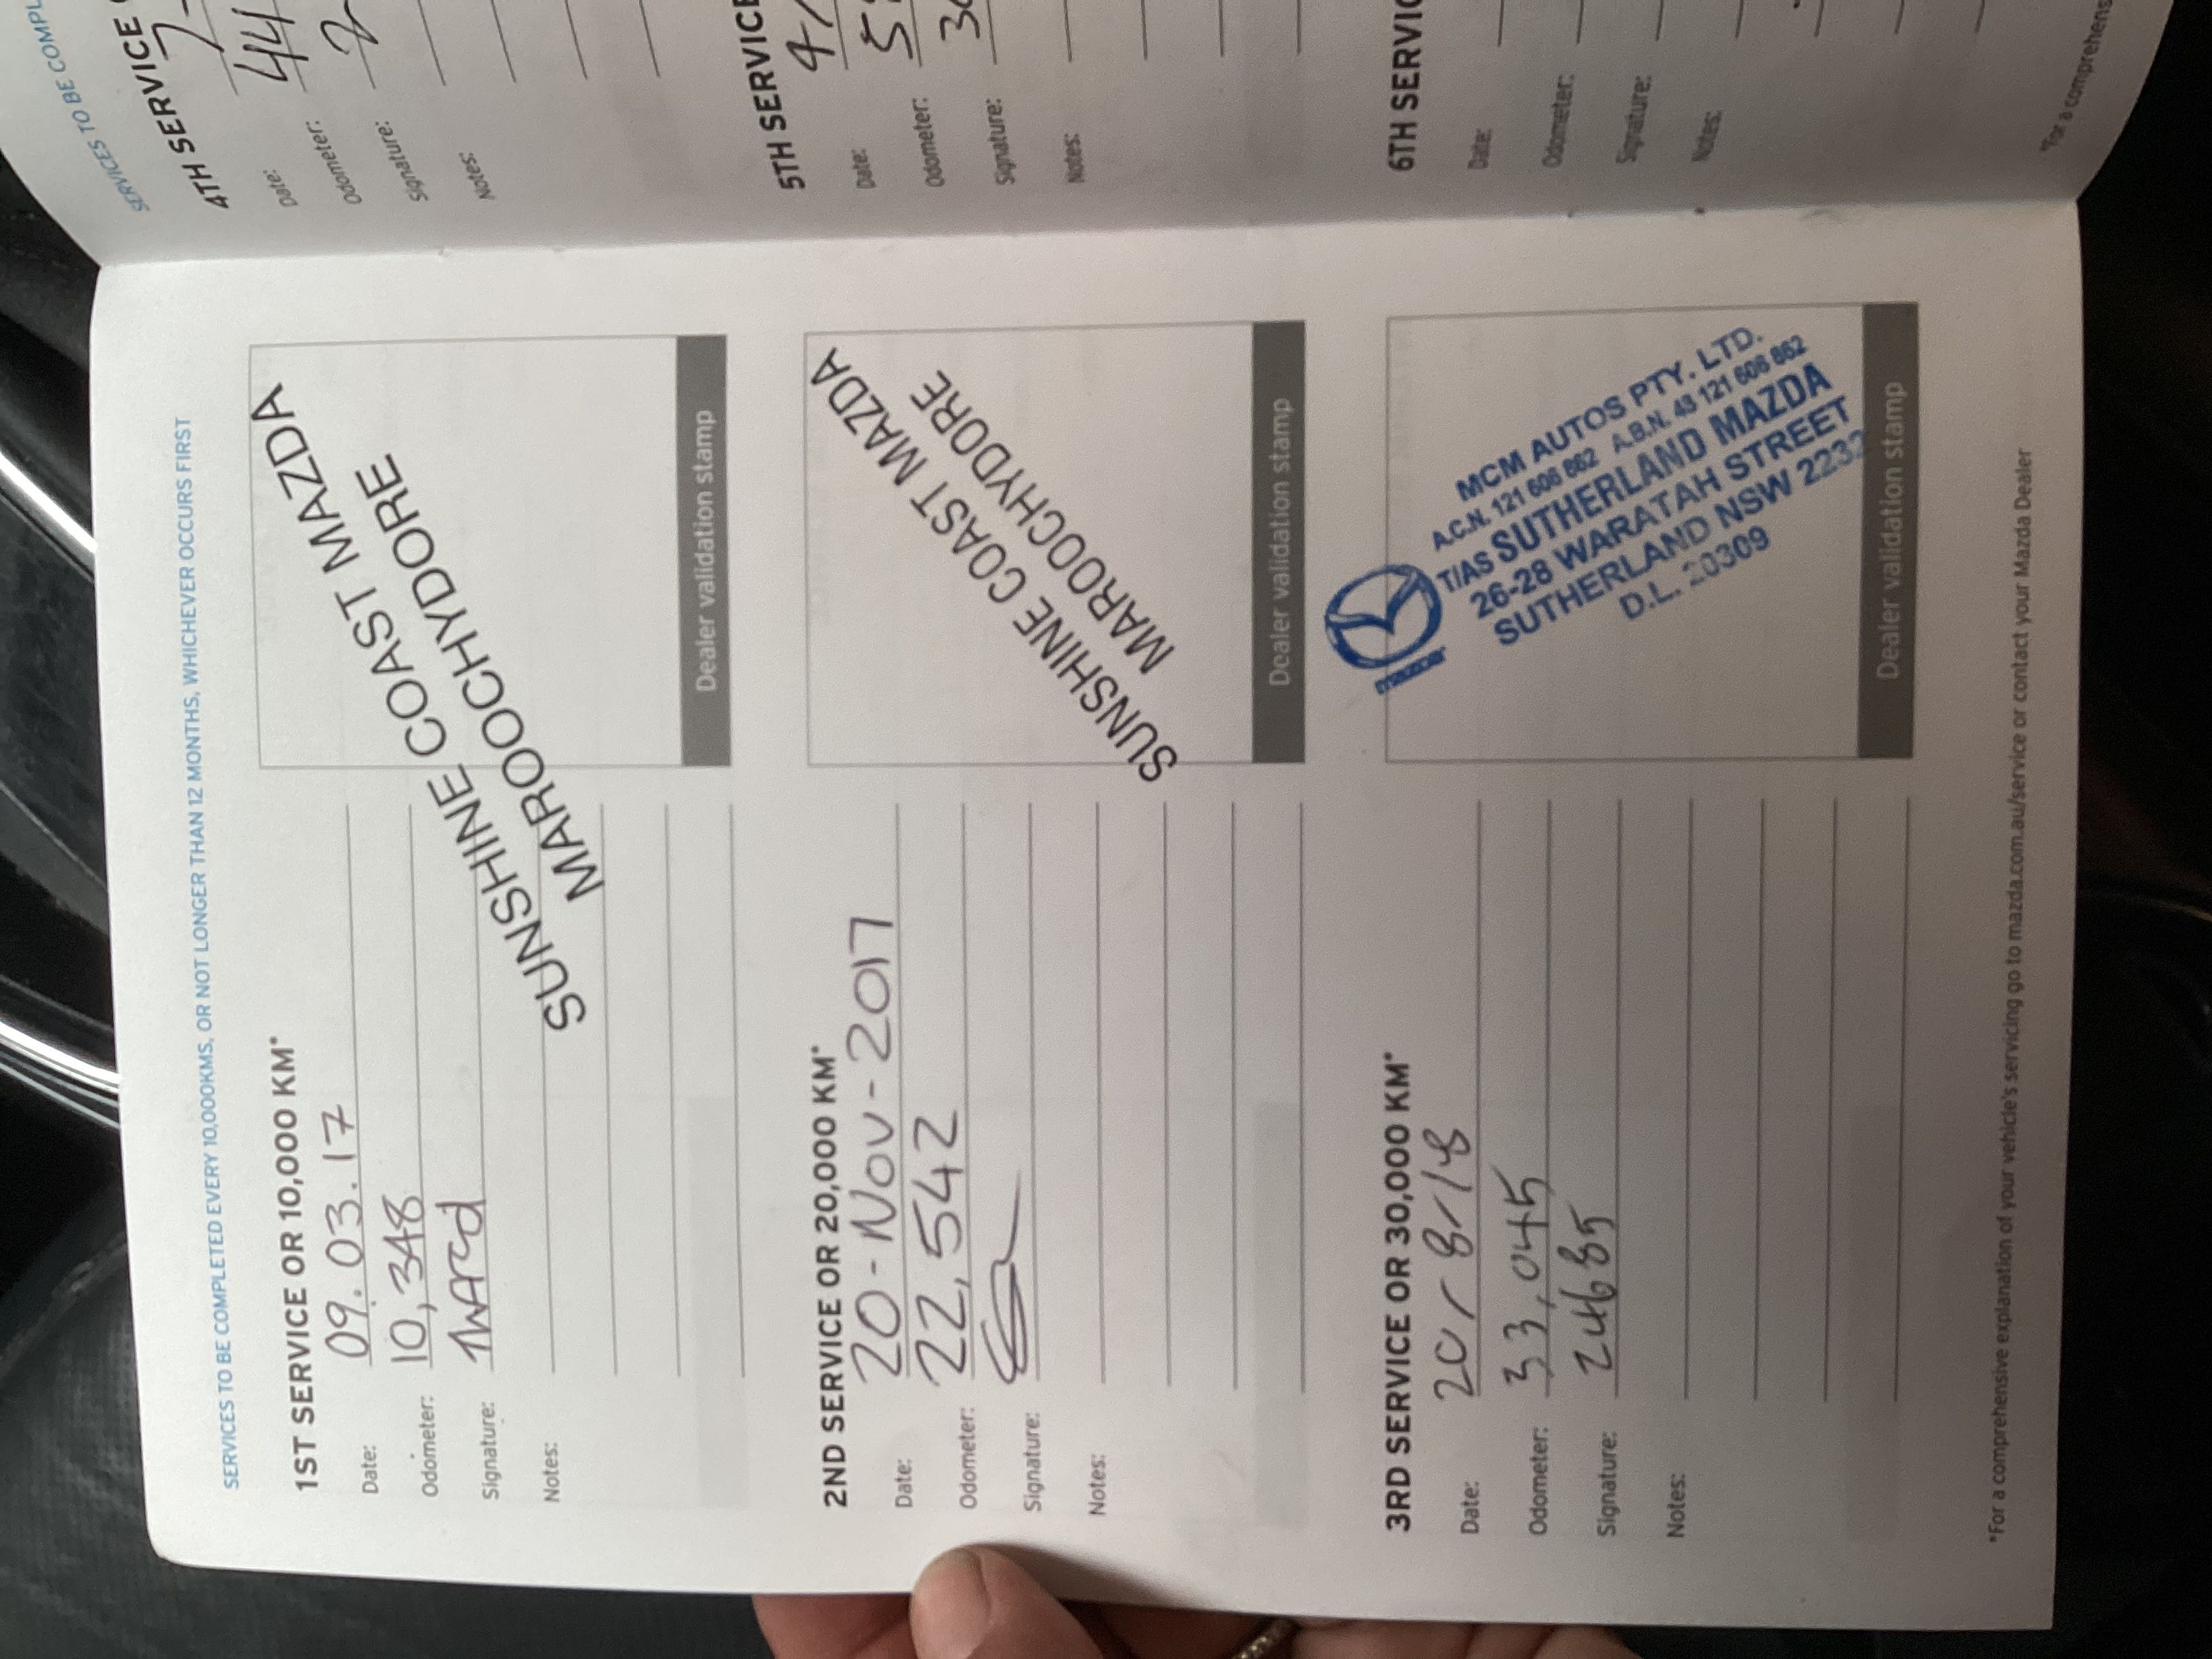 SERVICES TO BE COMPLETED EVERY 10,000KMS, OR NOT LONGER THAN 12 MONTHS, WHICHEVER OCCURS FIRST
1ST SERVICE OR 10,000 KM*
Date: 09.03.17
Odometer: 10,348
Signature:
Notes:
SUNSHINE COAST MAZDA
MAROOCHYDORE
Dealer validation stamp
2ND SERVICE OR 20,000 KM*
Date: 20-Nov-2017
Odometer: 22,542
Signature:
Notes:
SUNSHINE COAST MAZDA
MAROOCHYDORE
Dealer validation stamp
3RD SERVICE OR 30,000 KM*
Date: 20/8/18
Odometer: 33,045
Signature: 24685
Notes:
mazda
MCM AUTOS PTY. LTD.
A.C.N. 121 606 862 A.B.N. 43 121 606 862
T/AS SUTHERLAND MAZDA
26-28 WARATAH STREET
SUTHERLAND NSW 2232
D.L. 20309
Dealer validation stamp
*For a comprehensive explanation of your vehicle's servicing go to mazda.com.au/service or contact your Mazda Dealer
SERVICES TO BE
4TH SERVICE
Date: 44
Odometer: 2
Signature:
Notes:
5TH SERVICE
Date:
Odometer:
Signature:
Notes:
6TH
Date:
Odometer:
Signature:
Notes:
*For a